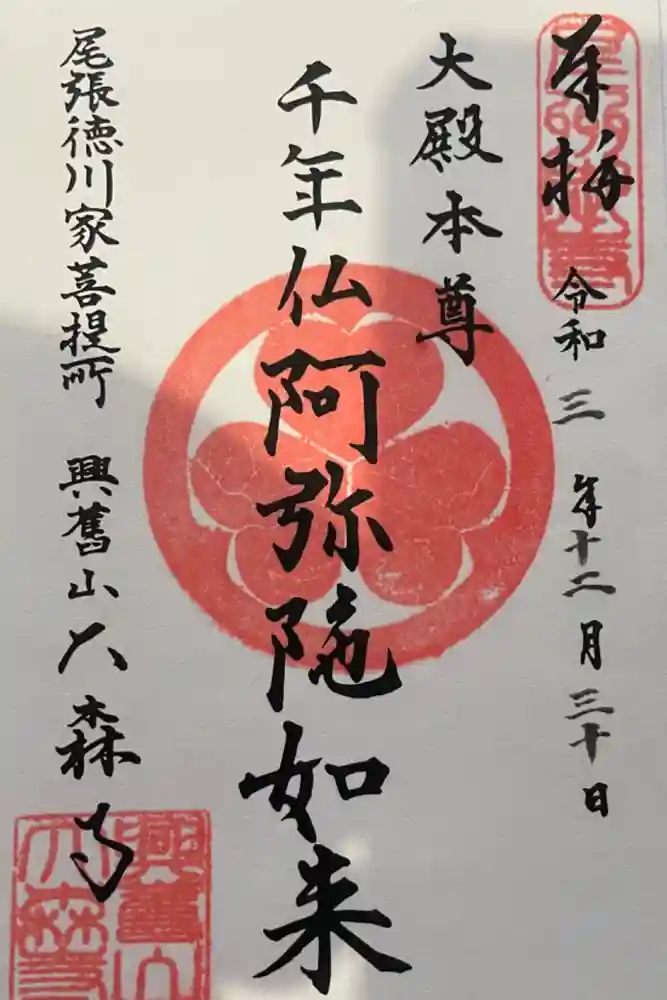 奉拝 令和三年十二月三十日
大殿本尊
千年仏阿弥陀如来
尾張徳川家菩提所 興旧山大森寺